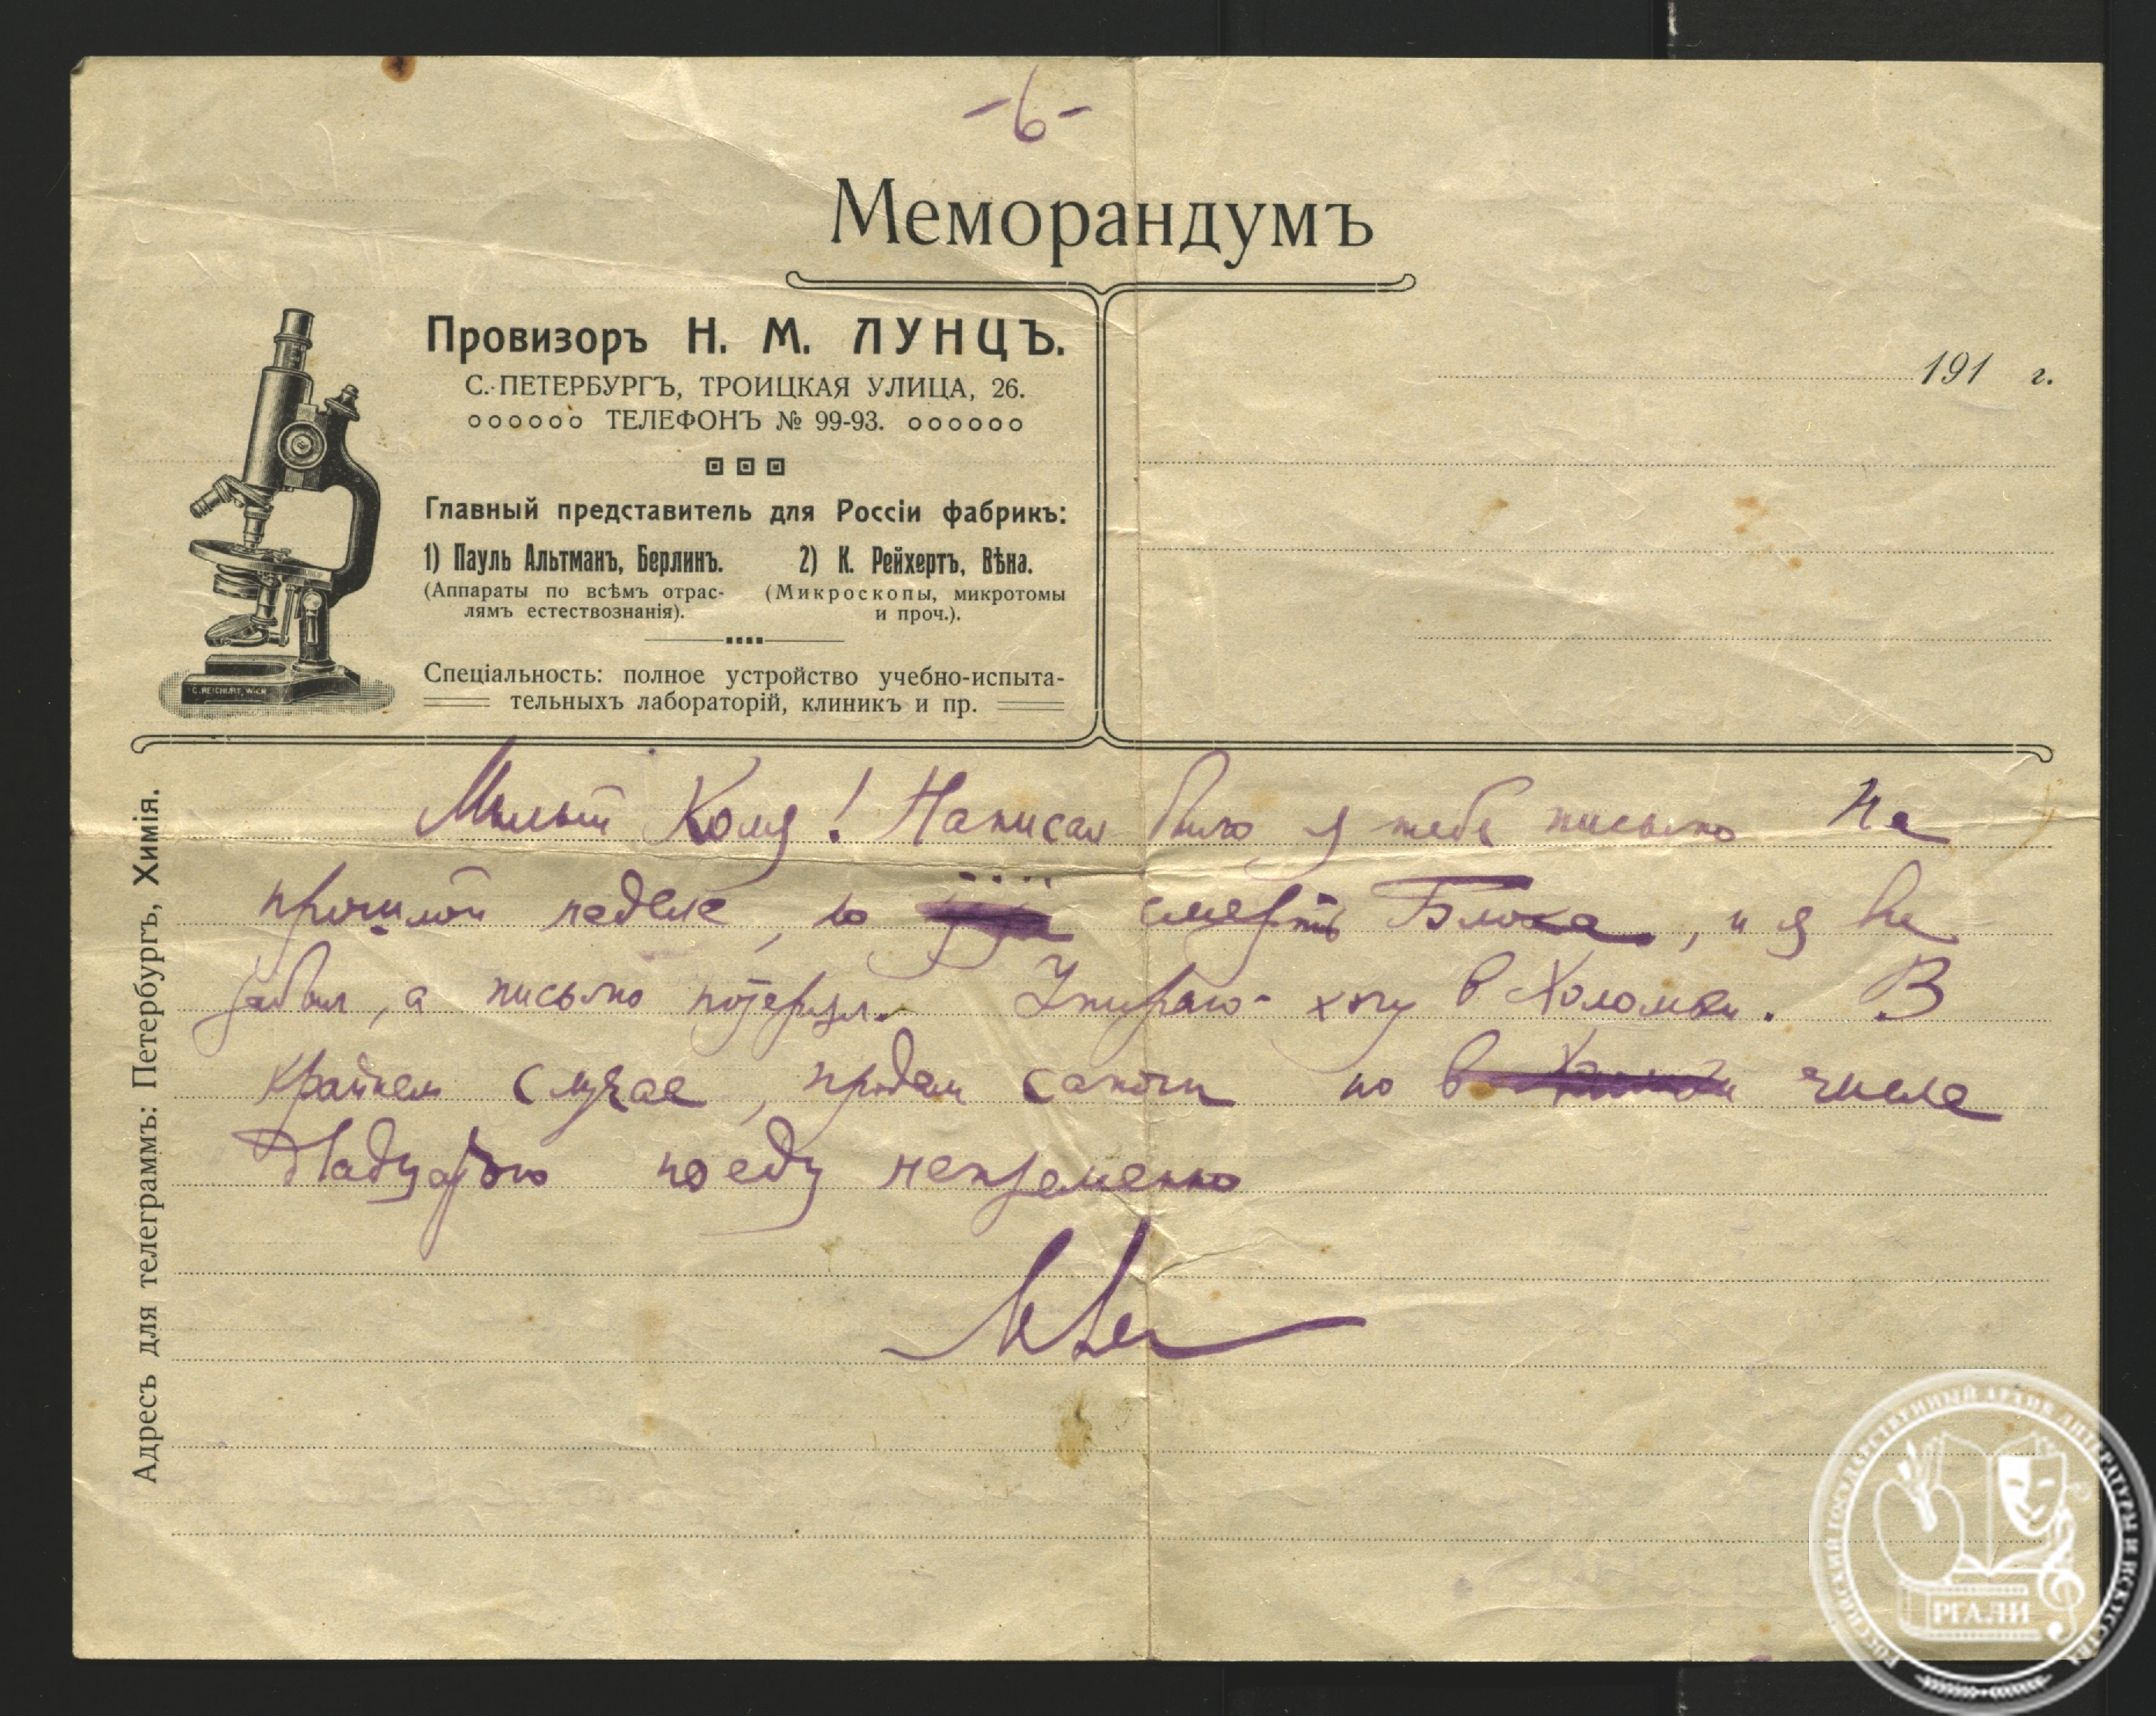 -6-
Меморандумъ
Провизоръ Н. М. ЛУНЦЪ.
С.-ПЕТЕРБУРГЪ, ТРОИЦКАЯ УЛИЦА, 26.
ТЕЛЕФОНЪ № 99-93.
191 г.
Главный представитель для Россіи фабрикъ:
1) Пауль Альтманъ, Берлинъ.
(Аппараты по всѣмъ отрас-
лямъ естествознанія).
2) К. Рейхертъ, Вѣна.
(Микроскопы, микротомы
и проч.).
Спеціальность: полное устройство учебно-испыта-
тельныхъ лабораторій, клиникъ и пр.
C. REICHERT, WIEN
Адресъ для телеграммъ: Петербургъ, Химія.
Милый Коля! Написал было я тебе письмо На
прошлой неделе, но смерть Блока, и я
забыл, а письмо потерял. Умираю - хочу в Холомки. В
крайнем случае, продам сапоги но в числе
двадцатого поеду непременно
РОССИЙСКИЙ ГОСУДАРСТВЕННЫЙ АРХИВ ЛИТЕРАТУРЫ И ИСКУССТВА
РГАЛИ